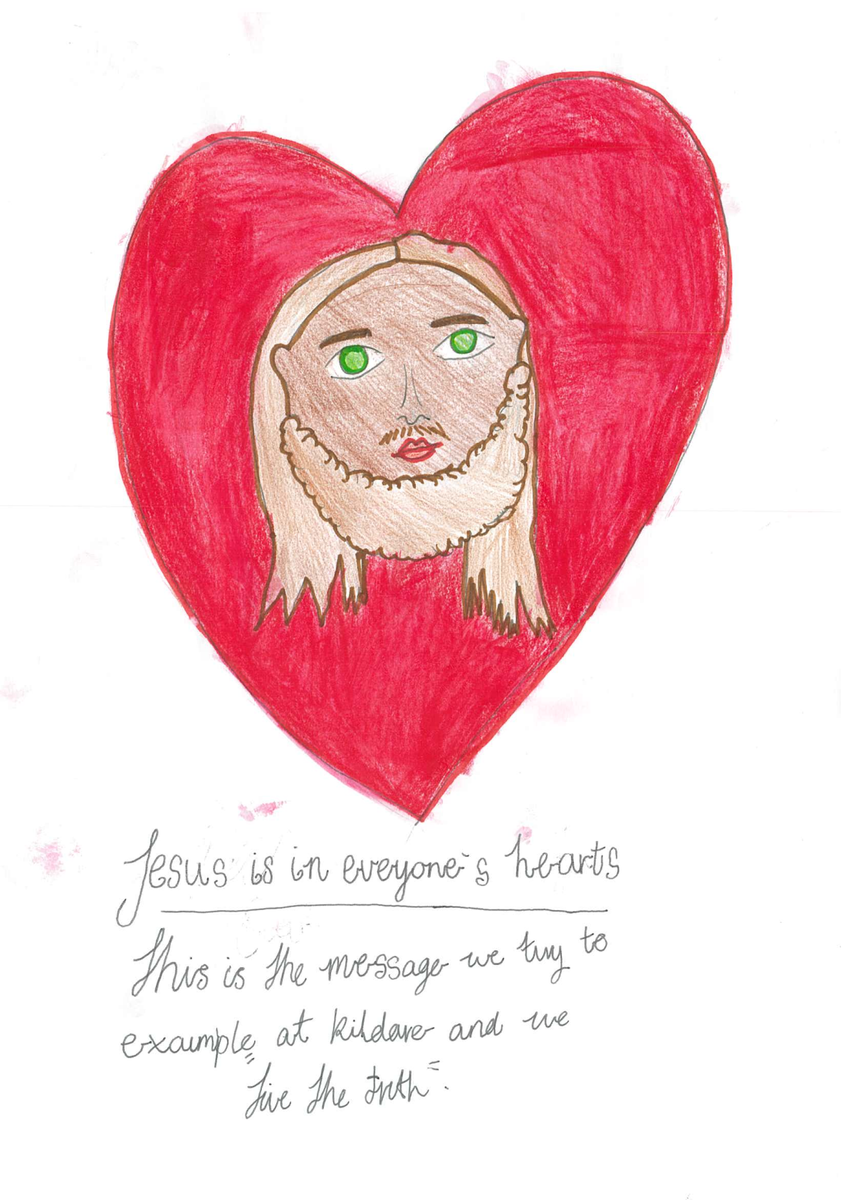 Jesus is in everyone's hearts
This is the message we try to
example at kildare and we
"live the truth".